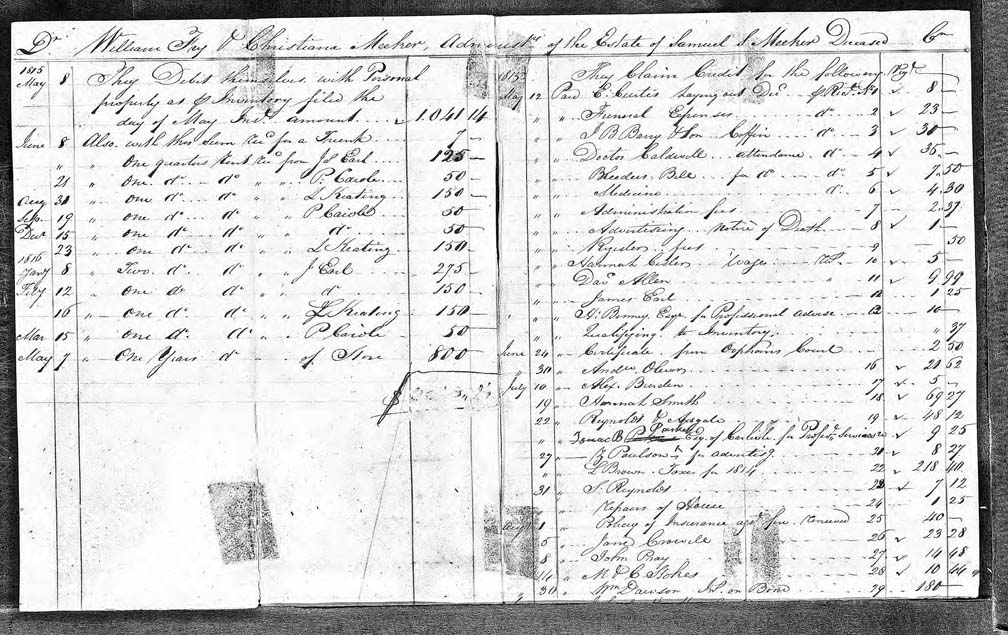 Dr William Fry & Christiana Meeker, Administrs of the Estate of Samuel S Meeker Deceased Con
1815
May 8 They Debit themselves with Personal
property as pr Inventory filed the
day of May Ind. amount 1.041 14
June 8 Also. with this sum Recd for a Trunk 7 –
" " one quarters Rent recd from Jas Earl 125 –
" 21 " one do do " " P. Caiole 50 –
Aug 31 " one do do " " L Keating 150 –
Sep. 19 " one do do " " P Caiole 50
Decr 15 " one do do " " do 50 –
" 23 " one do do " " L Keating 150 –
1816
Jany 8 " Two do do " " J Earl 275 –
Feby 12 " one do do " " do 150 –
16 " one do do " " L Keating 150 –
Mar 15 " one do. do " " P Caiole 50
May 7 " One Years do of Store 800 –
$
1815 They Claim Credit for the following
May 12 Paid E. Curtis Laying out Decd 1 8 –
" " Funeral Expenses do 2 23 –
" " J B Barry & Son Coffin do 3 30 –
" " Doctor Caldwell attendance do 4 35 –
" " Bleeders Bill for do do 5 7.50
" " Medicine do 6 4.30
" " Administration fees 7 2.37
" " Advertising notice of Death 8 1 –
" " Registers fees 9 50
" " Hannah wage 10 5 –
" " Davd Allen 11 9 99
" " James Earl 12 1 25
" " H. Binney Esqr for Professional advise 10 –
" " Qualifying to Inventory " 37
June 24 " Certificate from Orphans Court 2 50
30 " Andw 16 20 62
July 10 " Alex. Burden 17 5 –
19 " Hannah Smith 18 69 27
22 " Reynolds & 19 48 12
" " Isaac B Parker Esq. of Carlisle for Profesl Services 9 25
27 " Z Poulson for advertisg. 21 8 27
" " L Brown Taxes for 1814 22 218 40
31 " S. Reynolds 23 7 12
" repairs of House 24 1 25
Augt 1 " Policy of Insurance agt fire renewed 25 40 –
5 " Jane Crowell 26 23 28
8 " John Bray 27 14 48
14 " M & C Stokes 28 10 44
" 30 " Wm Dawson Int. on Bond 29 180 –